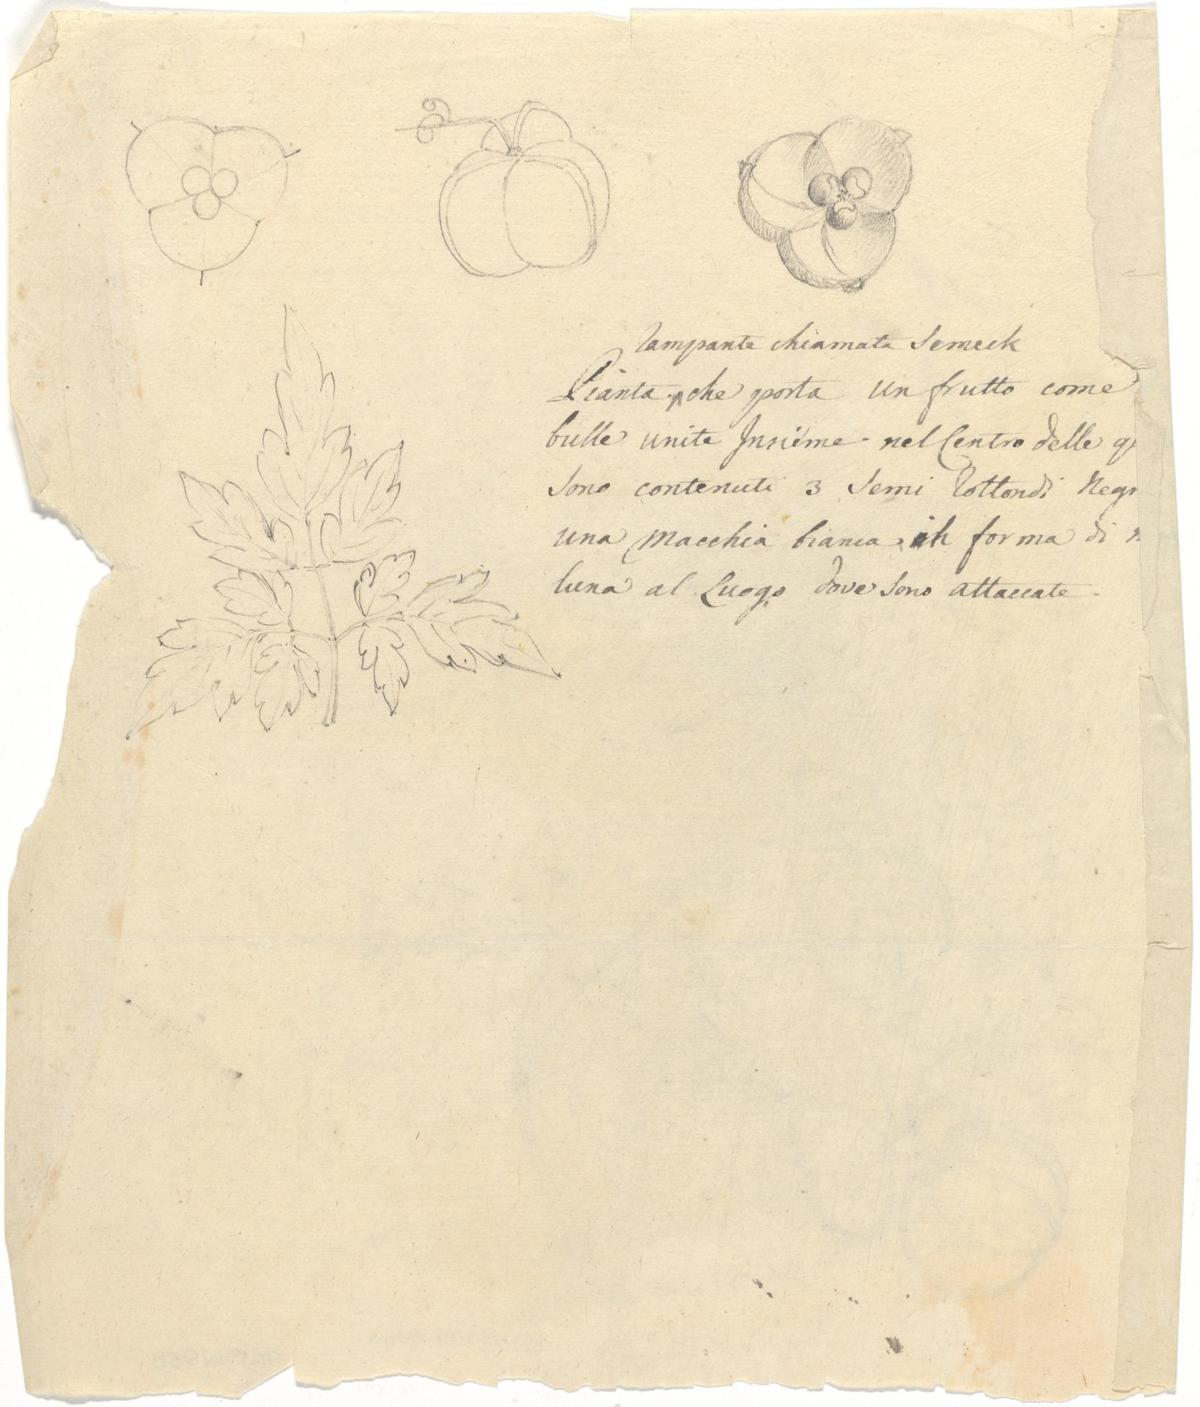 rampante chiamata Semeek
Pianta che porta un frutto come
bulle unite Insiême - nel Centro delle q
sono contenuti 3 semi rottondi Negr
una Macchia bianca, in forma di
luna al Luogo dove sono attaccate -